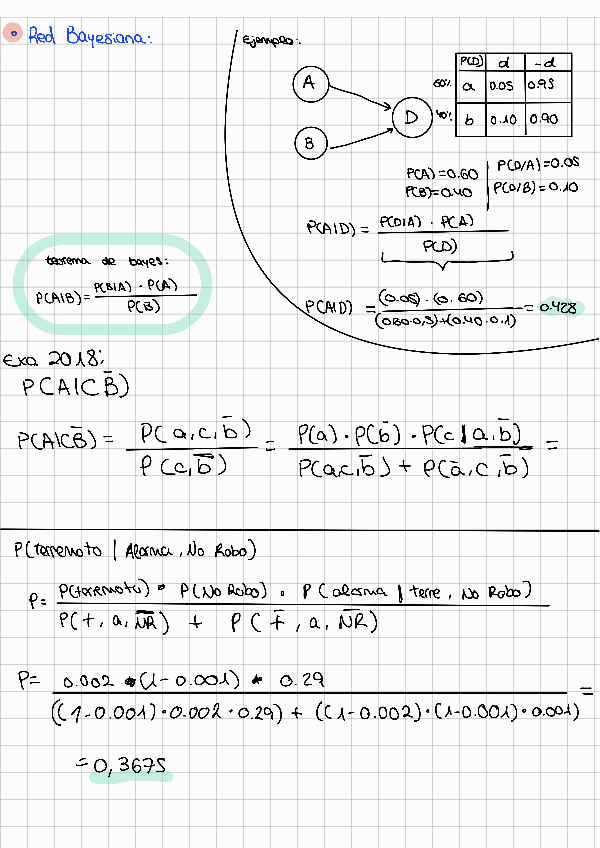 Red Bayesiana:
Ejemplo:
A
B
D
P(D) d -d
60% a 0.05 0.95
40% b 0.10 0.90
P(A)=0.60
P(B)=0.40
P(D/A)=0.05
P(D/B)=0.10
P(A|D)= P(D|A) · P(A)
P(D)
P(A|D) = (0.05) · (0.60)
(0.60·0,5)+(0.40·0.1)
= 0.428
teorema de bayes:
P(A|B)= P(B|A) · P(A)
P(B)
Exa 2018:
P(A|C B̅)
P(A|CB̅) = P(a,c,b̅) = P(a)·P(b̅)·P(c|a,b̅) =
P(c,b̅) P(a,c,b̅) + P(a̅,c,b̅)
P(terremoto | Alarma, No Robo)
P= P(terremoto) * P(No Robo) * P(alarma | terre, No Robo)
P(t, a, N̅R̅) + P(t̅, a, N̅R̅)
P= 0.002 * (1-0.001) * 0.29 =
((1-0.001)·0.002·0.29) + ((1-0.002)·(1-0.001)·0.001)
=0,3675